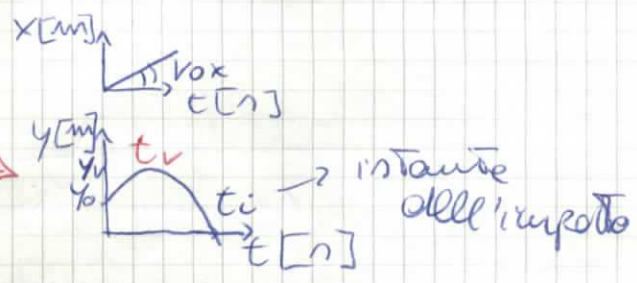 x[m]
v0x
t[s]
y[m]
tv
yv
y0
ti → istante
dell'impatto
t[s]